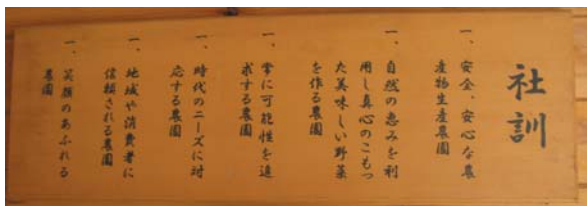 社訓
一、安全、安心な農
産物生産農園
一、自然の恵みを利
用し真心のこもっ
た美味しい野菜
を作る農園
一、常に可能性を追
求する農園
一、時代のニーズに対
応する農園
一、地域や消費者に
信頼される農園
一、笑顔のあふれる
農園